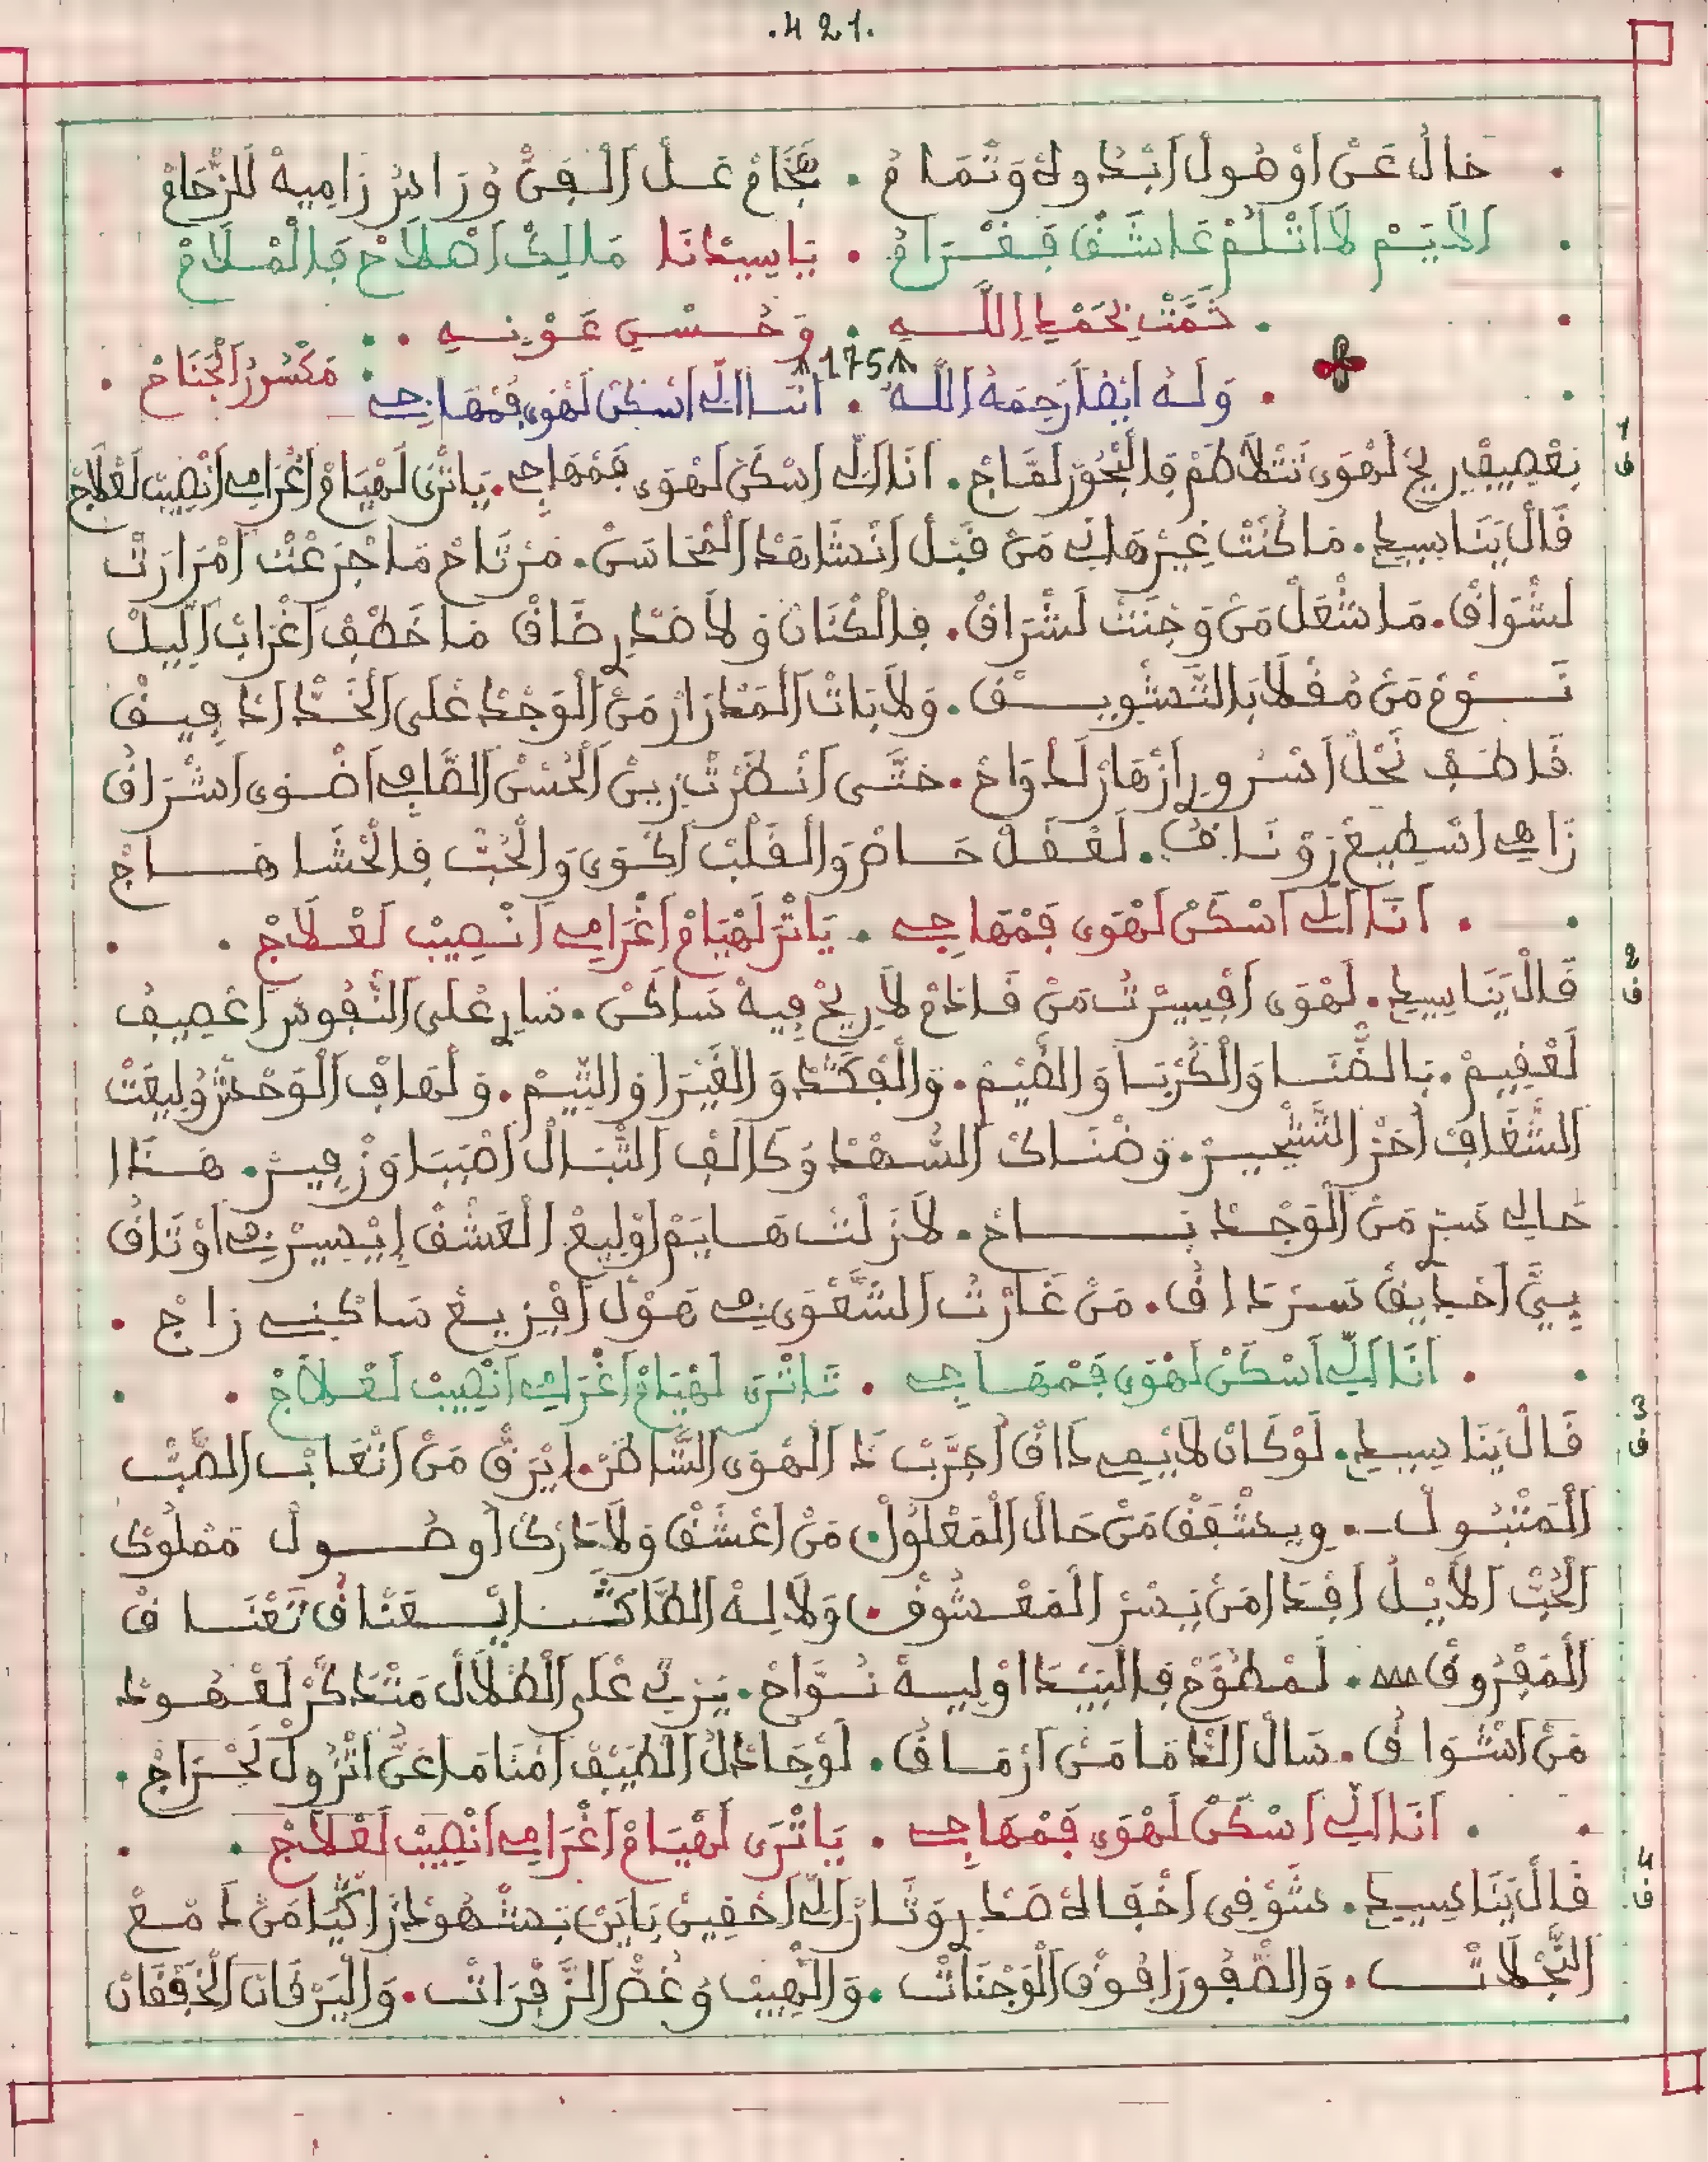 .421.
خالْ عَنْ اوْصُولْ اَبْدُولَهْ وَتْمَامْ . عَلْ اَلْفَنّْ وُرَايَسْ زَامِيهْ لَلزّْحَامْ
اَلاَيَمْ لاَ اتْلُمْ عَاشَقْ فَغْرَامْ . يَاسِيدْنَا مَالِكْ اَصْلاَحْ فَالْمْلاَمْ
. تَمَّتْ بِحَمْدِ اِللَّهِ . وَحُسْنِ عَوْنِهِ .
مَكْسُورْ اَلْجَنَاحْ .
175
. وَلَهُ اَيْضاً رَحِمَهُ اَللَّهُ . اَنَا اَلِّي اَسْكَنْ لَهْوَى فَمْهَاجِي
ق1
بَعْصِيفْ رِيحْ لَهْوَى تَتْلاَطَمْ فَالبْحُورْ لَمَّاجْ . اَنَا اَلِّي اَسْكَنْ لَهْوَى فَمْهَاجِي . يَاتْرَى لَهْيَامْ اَغْرَامِي اَنْصِيبْ لَعْلاَجْ
قَالْ يَنَا سِيدِي . مَا كُنْتْ غِيرْ هَانِي مَنْ قَبْلْ اَنْشَاهَدْ اَلْمْحَاسَنْ . مَرْتَاحْ مَا جْرَعْتْ اَمْرَارَتْ
لَشْوَاقْ . مَا شْعَلْ مَنْ وَجْنَتْ لَشْرَاقْ . فِالْكْنَانْ وَلاَ صَدْرِ ضَاقْ مَا خَطْفْ اَغْرَابْ اَللِّيلْ
نَــوْمْ مَنْ مُقْلاَ بَالتَّشْوِيــقْ . وَلاَ بَاتْ اَلْمَدْرَارْ مَنْ اَلْوَجْدْ عْلَى اَلْخَدّْ اَدْفِيقْ
قَاطَفْ نَحْلْ اَسْرُورِ اَزْهَارْ لَدْوَاحْ . حَتَّى اَنْظَرْتْ زِينْ اَلْحُسْنْ اَلصَّامِي اَضْوَى اَشْرَاقُ
زَاهِي اَسْطِيعْ زَوْنَاقُ . لَعْقَلْ حَــاصْ وَالْقَلْبْ اَكْوَى وَالْحُبّْ فِالْحْشَا هَــاجْ
. اَنَا اَلِّي اَسْكَنْ لَهْوَى فَمْهَاجِي . يَاتْرَ لَهْيَامْ اَغْرَامِي اَنْصِيبْ لَعْلاَجْ .
ق2
قَالْ يَنَا سِيدِي . لَهْوَى اَفْسِيسْرْتْ مَنْ قَادَمْ لاَ رِيحْ فِيهْ سَاكَنْ . سَارِ عْلَى اَلنّْفُوسْ اَعْصِيفُ
لَعْقِيمْ . بَالضّْنَــا وَالْكُرْبَــا وَالضَّيْمْ . وَالْفَكْدْ وَالْغَيْرَا وَالتِّيمْ . وَلَهَافْ اَلْوَحْشْ وُلِيعَتْ
اَلشّْغَافْ اَخْرْ اَلتَّشْحِيــرْ . وَضْنَــاكْ اَلسُّهْدْ وُكَالَفْ اَلنّْبَــالْ اَصْبَبَا وَزْفِيــرْ . هَــذَا
حَالِي سَرْ مَنْ اَلْوَجْــدْ بَــــاحْ . لاَزَلْتْ هَــايَمْ اَوْلِيعْ اَلْعَشْقْ اِيْسِيرْنِي اَوْثَاقُ
بِيَّ اَحْدَايَقْ سَــرْدَاقُ . مَنْ غَارَتْ اَلشَّعْوَى بِهَوْلْ اَفْزِيعْ سَاكْنِي زَاجْ .
. اَنَا اَلِّي اَسْكَنْ لَهْوَى فَمْهَــاجِي . يَاتْرَى لَهْيَامْ اَغْرَامِي اَنْصِيبْ لَعْلاَجْ .
ق3
قَالْ يَنَا سِيدِي . لَوْكَانْ لاَيْمِي دَاقْ اَجَرَّبْ دَ اَلْهْوَى اَلشَّاطَنْ . اِيْرَقّْ مَنْ اَتْعَابْ اَلصَّبّْ
اَلْمَتْبُــولْ . وِيشْفَقْ مَنْ حَالْ اَلْمَعْلُولْ . مَنْ اَعْشَقْ وَلاَ دَرَكْ اَوصُــولْ مَمْلُوكْ
اَلْحُبّْ اَلاَيْــلْ اَفْدَا مَنْ يَسْرْ اَلْمَعْشُوقْ . وَلاَ لِــهْ اَلطَّاقَــا يَــعْتَاقْ تَعْتَــاقْ
اَلْمَفْرُوقْ . لَمْطَوَّحْ فِالبَيْــدَا اَوْلِيــهْ نُــوَّاحْ . يَرْثِي عْلَى اَلطْلاَلْ مَتْدَكَّرْ لَعْهُــودْ
مَنْ اَشْوَاقُ . سَالْ اَلدّْمَا مَنْ اَرْمَــاقُ . لَوْ جَادْلُ اَلطَّيْفْ اَمْنَامَا عَنُّ اَتْزُولْ لَحْــرَاجْ .
. اَنَا اَلِّي اَسْكَنْ لَهْوَى فَمْهَاجِي . يَاتْرَى لَهْيَامْ اَغْرَامِي اَنْصِيبْ لَعْلاَجْ .
ق4
قَالْ يَنَا سِيدِي . شَوْقِي اَخْفَالَهْ صَدْرِ وَثَارْ اَلِّي اَخْفِيتْ بَايَنْ بَشْهُودْ زَاكْيَا مَنْ دَمْعْ
اَلنَّجْلاَتْــ . وَالصّْفُورَا فُوقْ اَلْوَجْنَاتْ . وَاَلْهِيبْ وُغُضْ اَلزَّفْرَاتْــ . وَالْيَرْقَانْ اَلْخَفْقَانْ